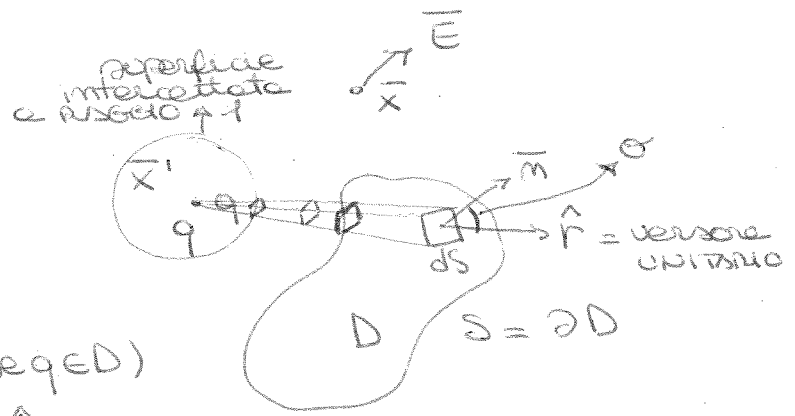 E
superficie
intercettata
a raggio 1
x
x'
n
θ
q
r̂ = versore
UNITARIO
dS
D
S = ∂D
e q ∈ D)